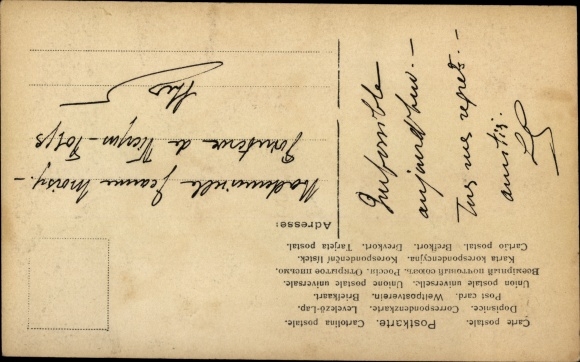 Carte postale. Postkarte. Cartolina postale.
Dopisnice. Correspondenzkarte. Levelező-Lap.
Post card. Weltpostverein. Briefkaart.
Union postale universelle. Unione postale universale.
Всемірный почтовый союзъ. Россія. Открытое письмо.
Karta korespondencyjna. Korespondenční lístek.
Cartão postal. Brefkort. Brevkort. Tarjeta postal.
Adresse:
Mademoiselle Jeanne
de
Impossible
aujourd'hui.—
Tus mes regrets.—
amitiés.